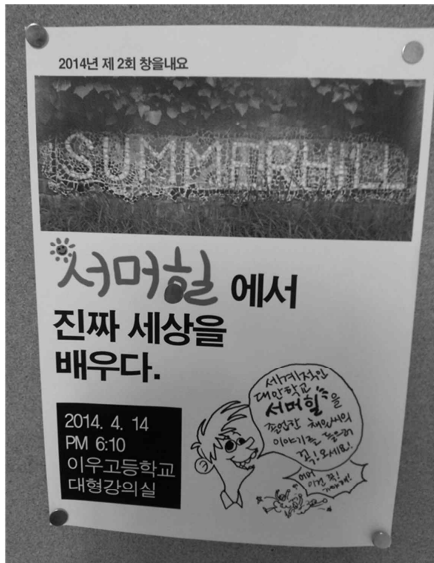 2014년 제 2회 창을내요
SUMMARHILL
서머힐 에서
진짜 세상을
배우다.
2014. 4. 14
PM 6:10
이우고등학교
대형강의실
세계적인
대안학교
서머힐을
졸업한 채인씨의
이야기를 들으러
꼭! 오세요!
어머
이건 꼭!